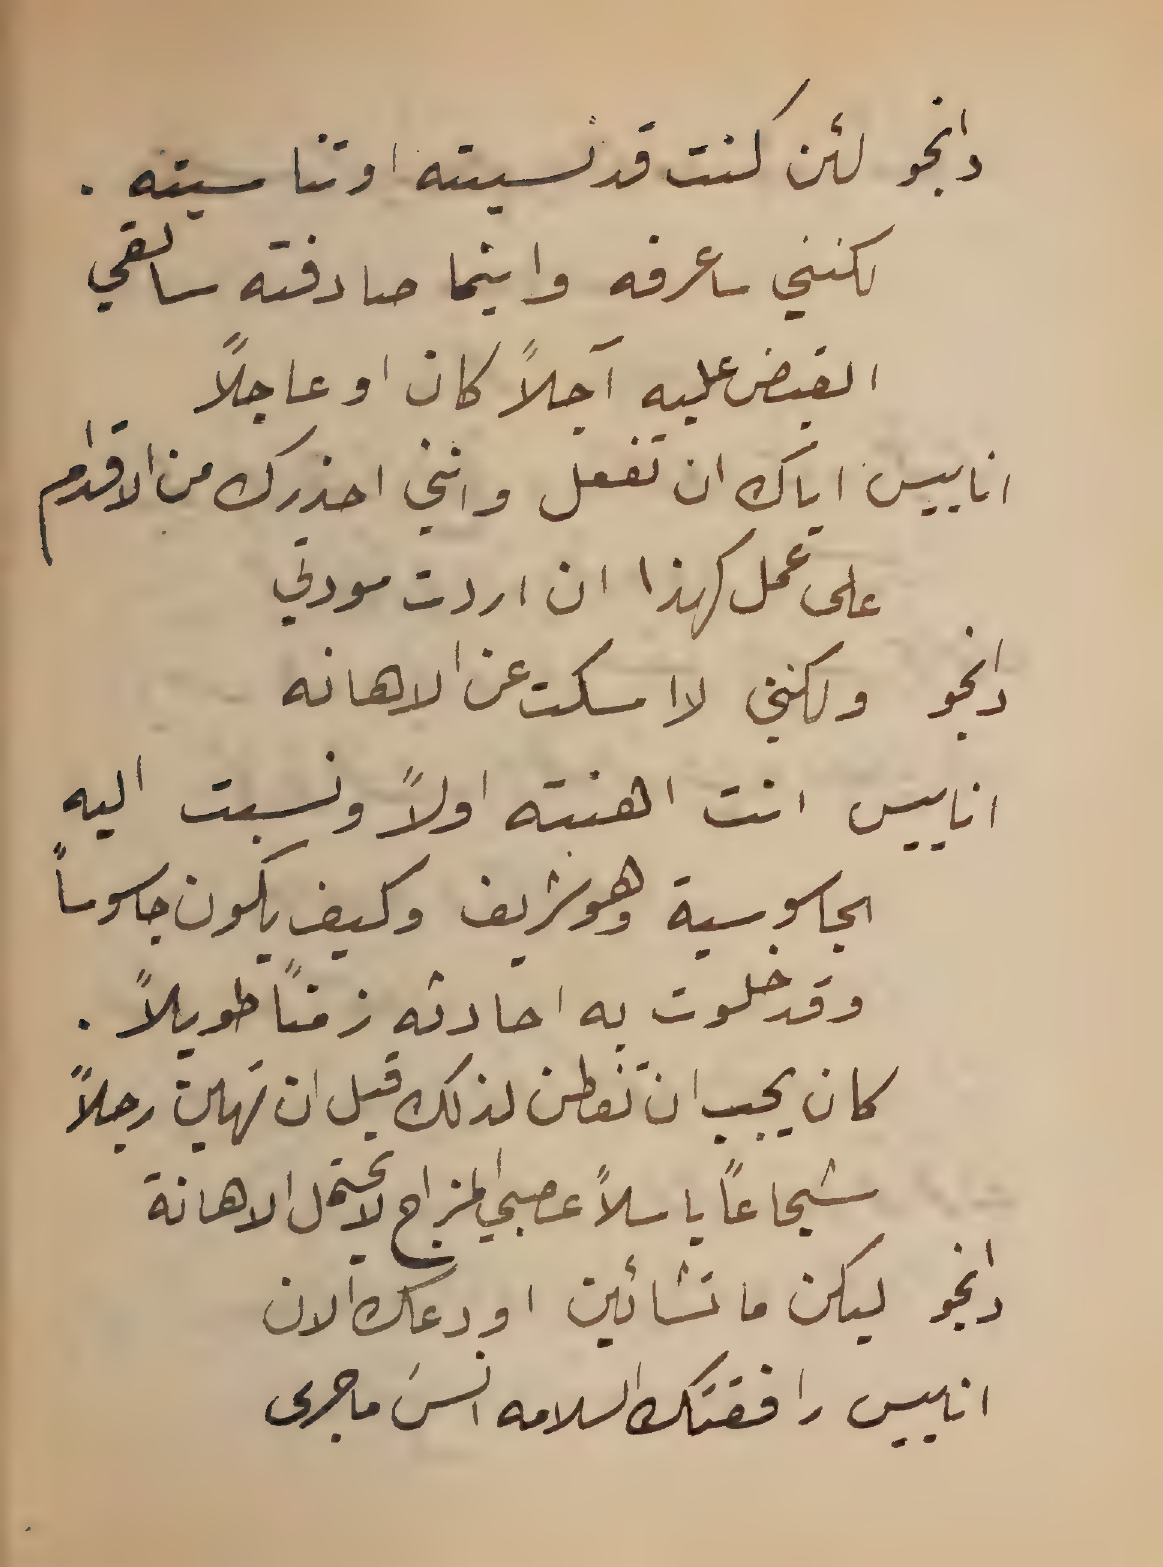 دانجو لئن كنت قد نسيته او تناسيته .
لكنني ساعرفه واينما صادفته سالقي
القبض عليه آجلاً كان او عاجلاً
اناييس اياك ان تفعل وانني احذرك من الاقدام
على عمل كهذا ان اردت مودتي
دانجو ولكنني لا اسكت عن الاهانه
اناييس انت اهنته اولاً ونسبت اليه
الجاسوسية وهو شريف وكيف يكون جاسوساً
وقد خلوت به احادثه زمناً طويلاً .
كان يجب ان تفطن لذلك قبل ان تهين رجلاً
شجاعاً باسلاً عصبي المزاج لا يحتمل الاهانة
دانجو ليكن ما تشائين اودعك الان
اناييس رافقتك السلامه انسَ ما جرى